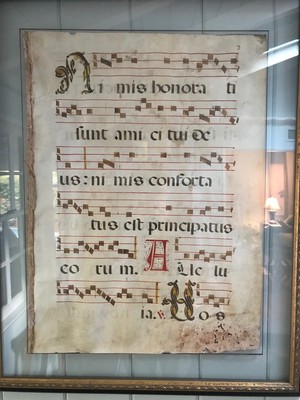 Nimis honora ti
sunt ami ci tui de
us: ni mis conforta
tus est principatus
eo rum. Alle lu
ia. v. Uos